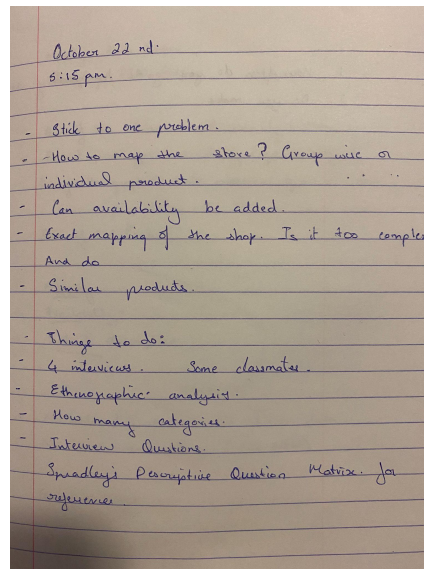 October 22 nd.
5:15 pm.
- Stick to one problem.
- -How to map the store? Group wise or
individual product.
- Can availability be added.
- Exact mapping of the shop. Is it too comple
And do
- Similar products.
- Things to do:
- 4 interviews. Some classmates.
- Ethenographic analysis.
- How many categories.
- Interview Questions.
Spradley's Descriptive Question Matrix. for
references.